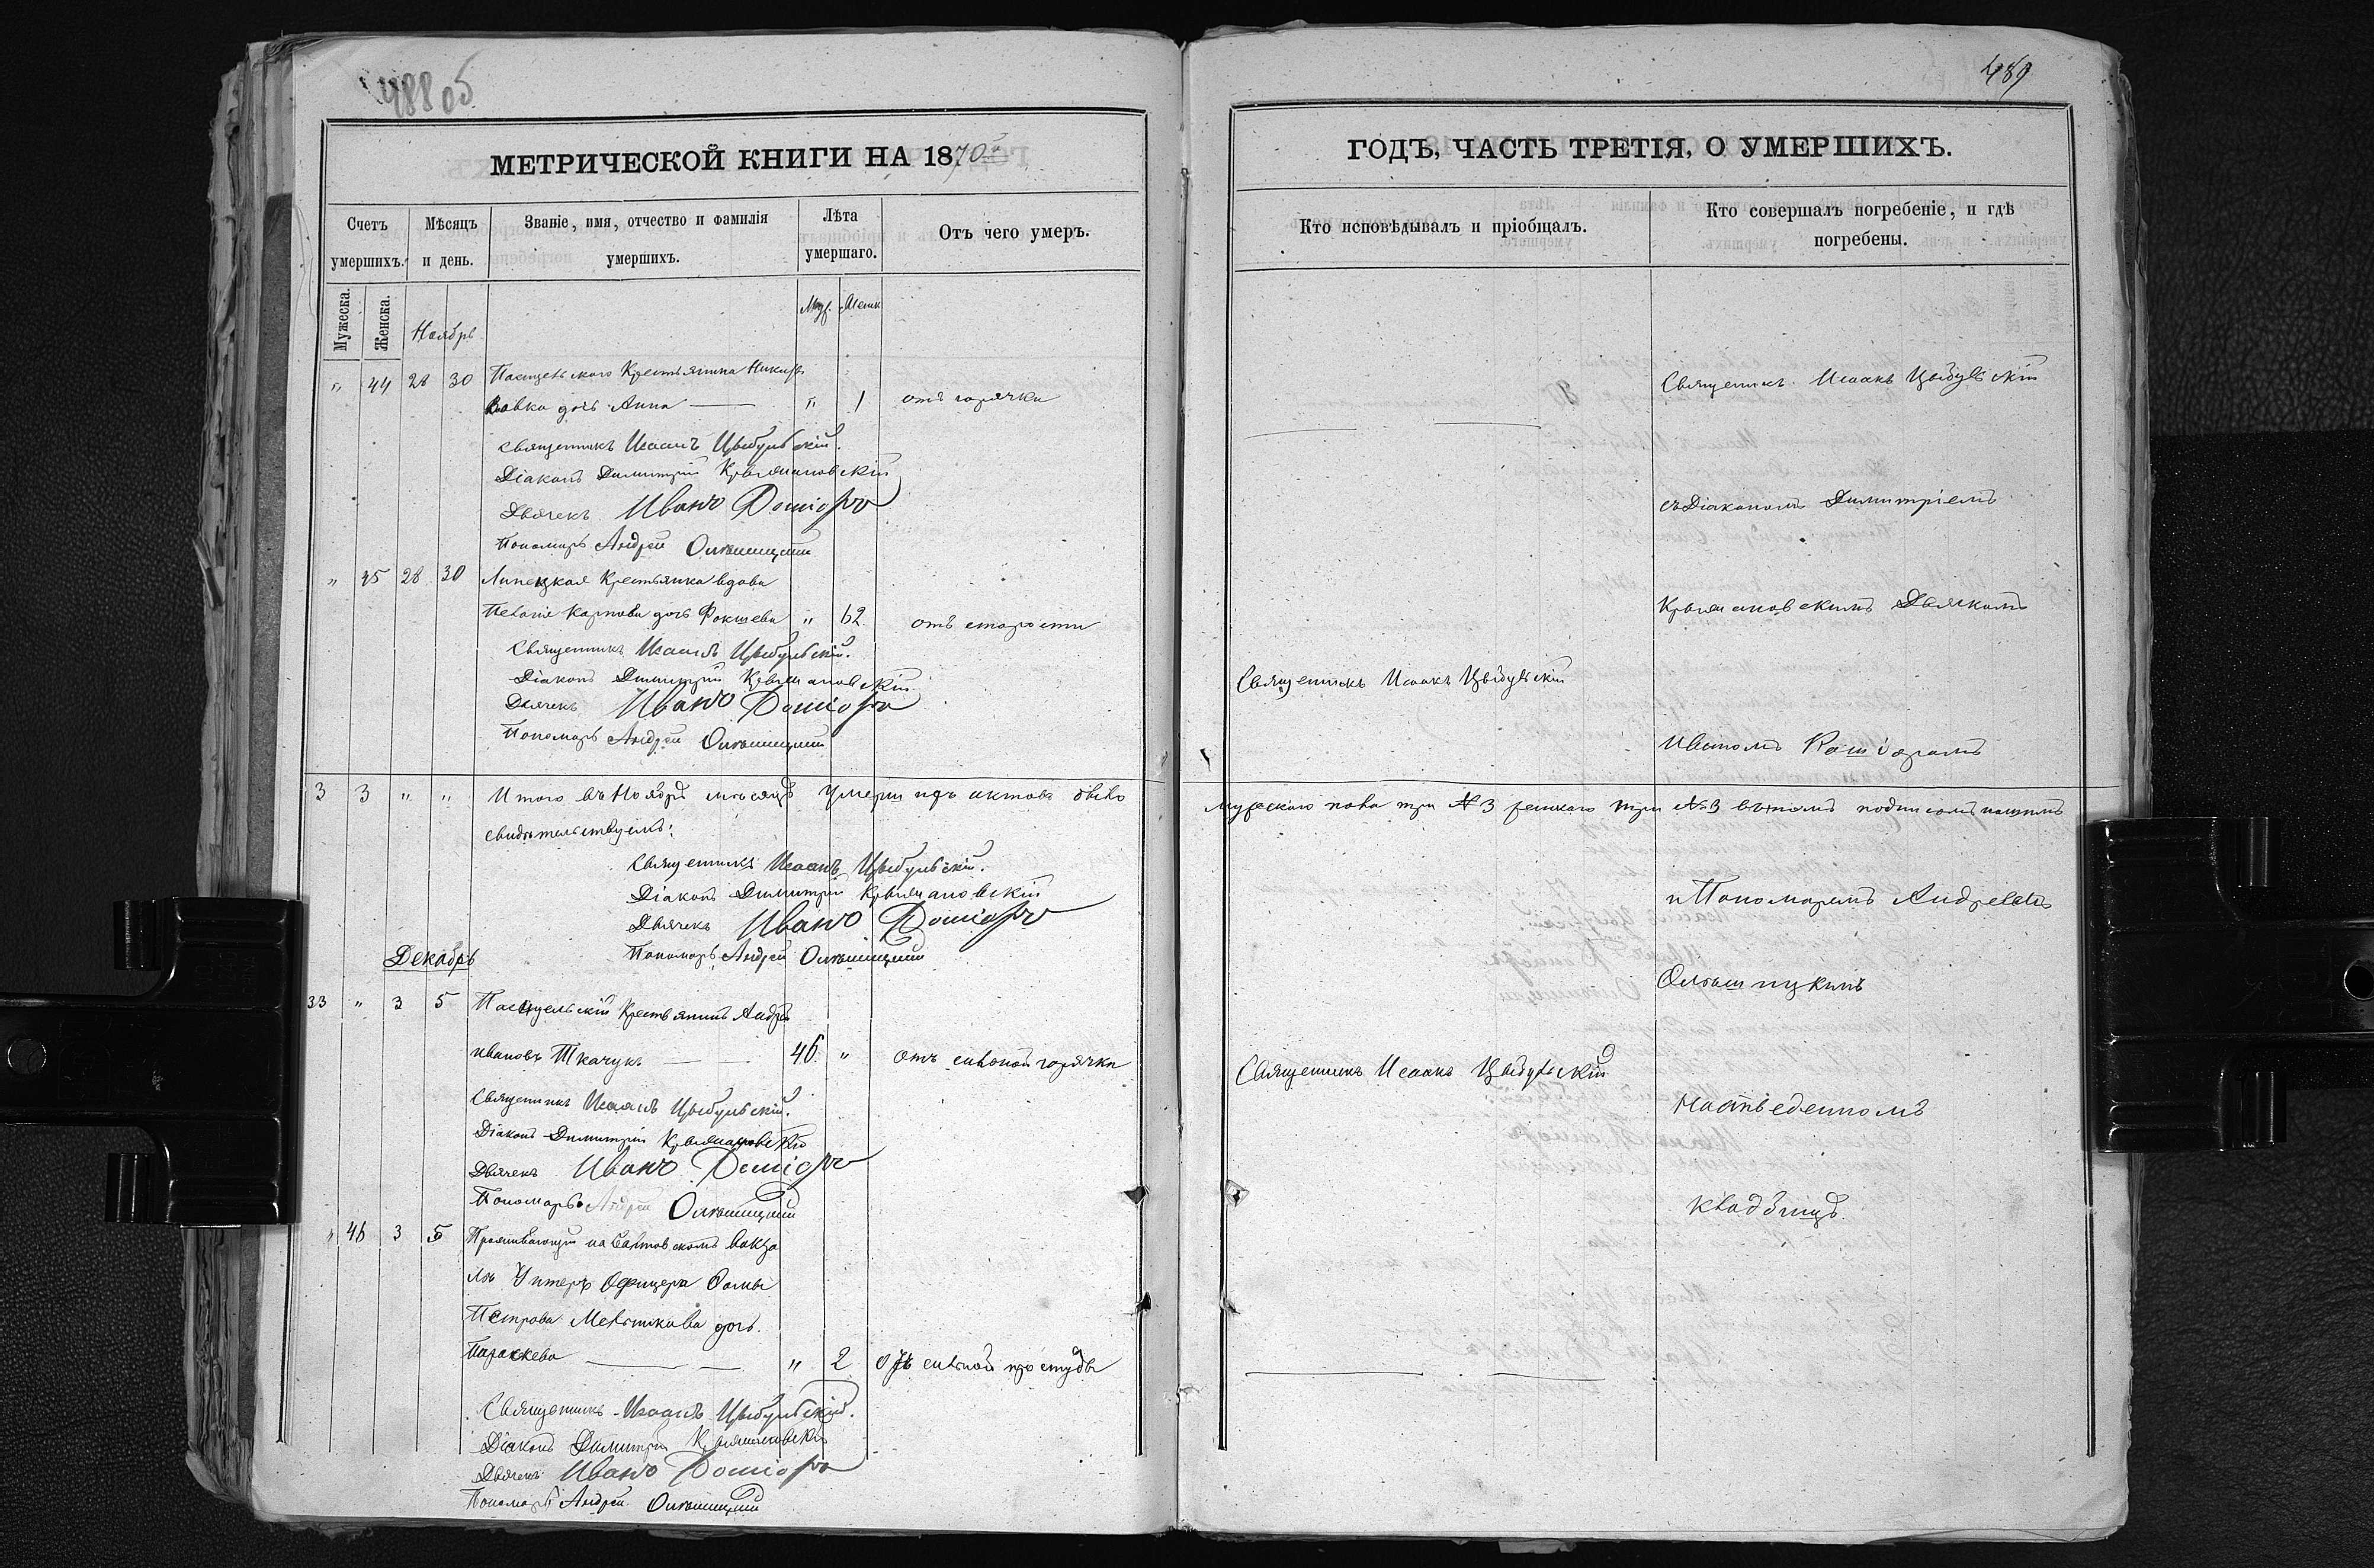 488 об
МЕТРИЧЕСКОЙ КНИГИ НА 1870й
Счетъ умершихъ.
Мѣсяцъ и день.
Званіе, имя, отчество и фамилія умершихъ.
Лѣта умершаго.
Отъ чего умеръ.
Мужеска.
Женска.
Муж.
Женск
Ноябрь
„ 44 28 30 Пасицельского Крестьянина Никиф
Вовка дочь Анна — „ 1 отъ горячки
Священникъ Исаакъ Цыбульскій.
Діаконъ Димитрій Крыжановскій
Дьячекъ Иванъ
Пономарь Андрей
„ 45 28 30 Липецкая Крестьянка вдова
Пелагія Карпова дочь Фокшева „ 62 отъ старости
Священникъ Исаакъ Цыбульскій.
Діаконъ Димитрій Крыжановскій
Дьячекъ Иванъ
Пономарь Андрей
3 3 „ „ Итого въ Ноябрѣ мѣсяцѣ умерш
свидѣтельствуемъ:
Священникъ Исаакъ Цыбульскій.
Діаконъ Димитрій Крыжановскій
Дьячекъ Иванъ
Пономарь Андрей
Декабрь
33 „ 3 5 Пасицельскій Крестьянинъ Андрей
Ивановъ Ткачукъ — — 46 „ отъ сильной горячки
Священникъ Исаакъ Цыбульскій.
Діаконъ Димитрій Крыжановскій
Дьячекъ Иванъ
Пономарь Андрей
„ 46 3 5 Проживающій на вокза
лѣ Унтеръ Офицера Фомы
Петрова Мельникова дочь
Параскева — — „ 2 отъ сильной простуды
Священникъ Исаакъ Цыбульскій.
Діаконъ Димитрій Крыжановскій
Дьячекъ Иванъ
Пономарь Андрей
489
ГОДЪ, ЧАСТЬ ТРЕТІЯ, О УМЕРШИХЪ.
Кто исповѣдывалъ и пріобщалъ.
Кто совершалъ погребеніе, и гдѣ погребены.
Священникъ Исаакъ Цыбульскій
съ Діакономъ Димитріемъ
Крыжановскимъ Дьячкомъ
Священникъ Исаакъ Цыбульскій
Иваномъ
мужескаго пола три № 3 женскаго три № 3 въ томъ подписомъ нашимъ
и Пономаремъ Андреемъ
Священникъ Исаакъ Цыбульскій
На отведенномъ
кладбищѣ.